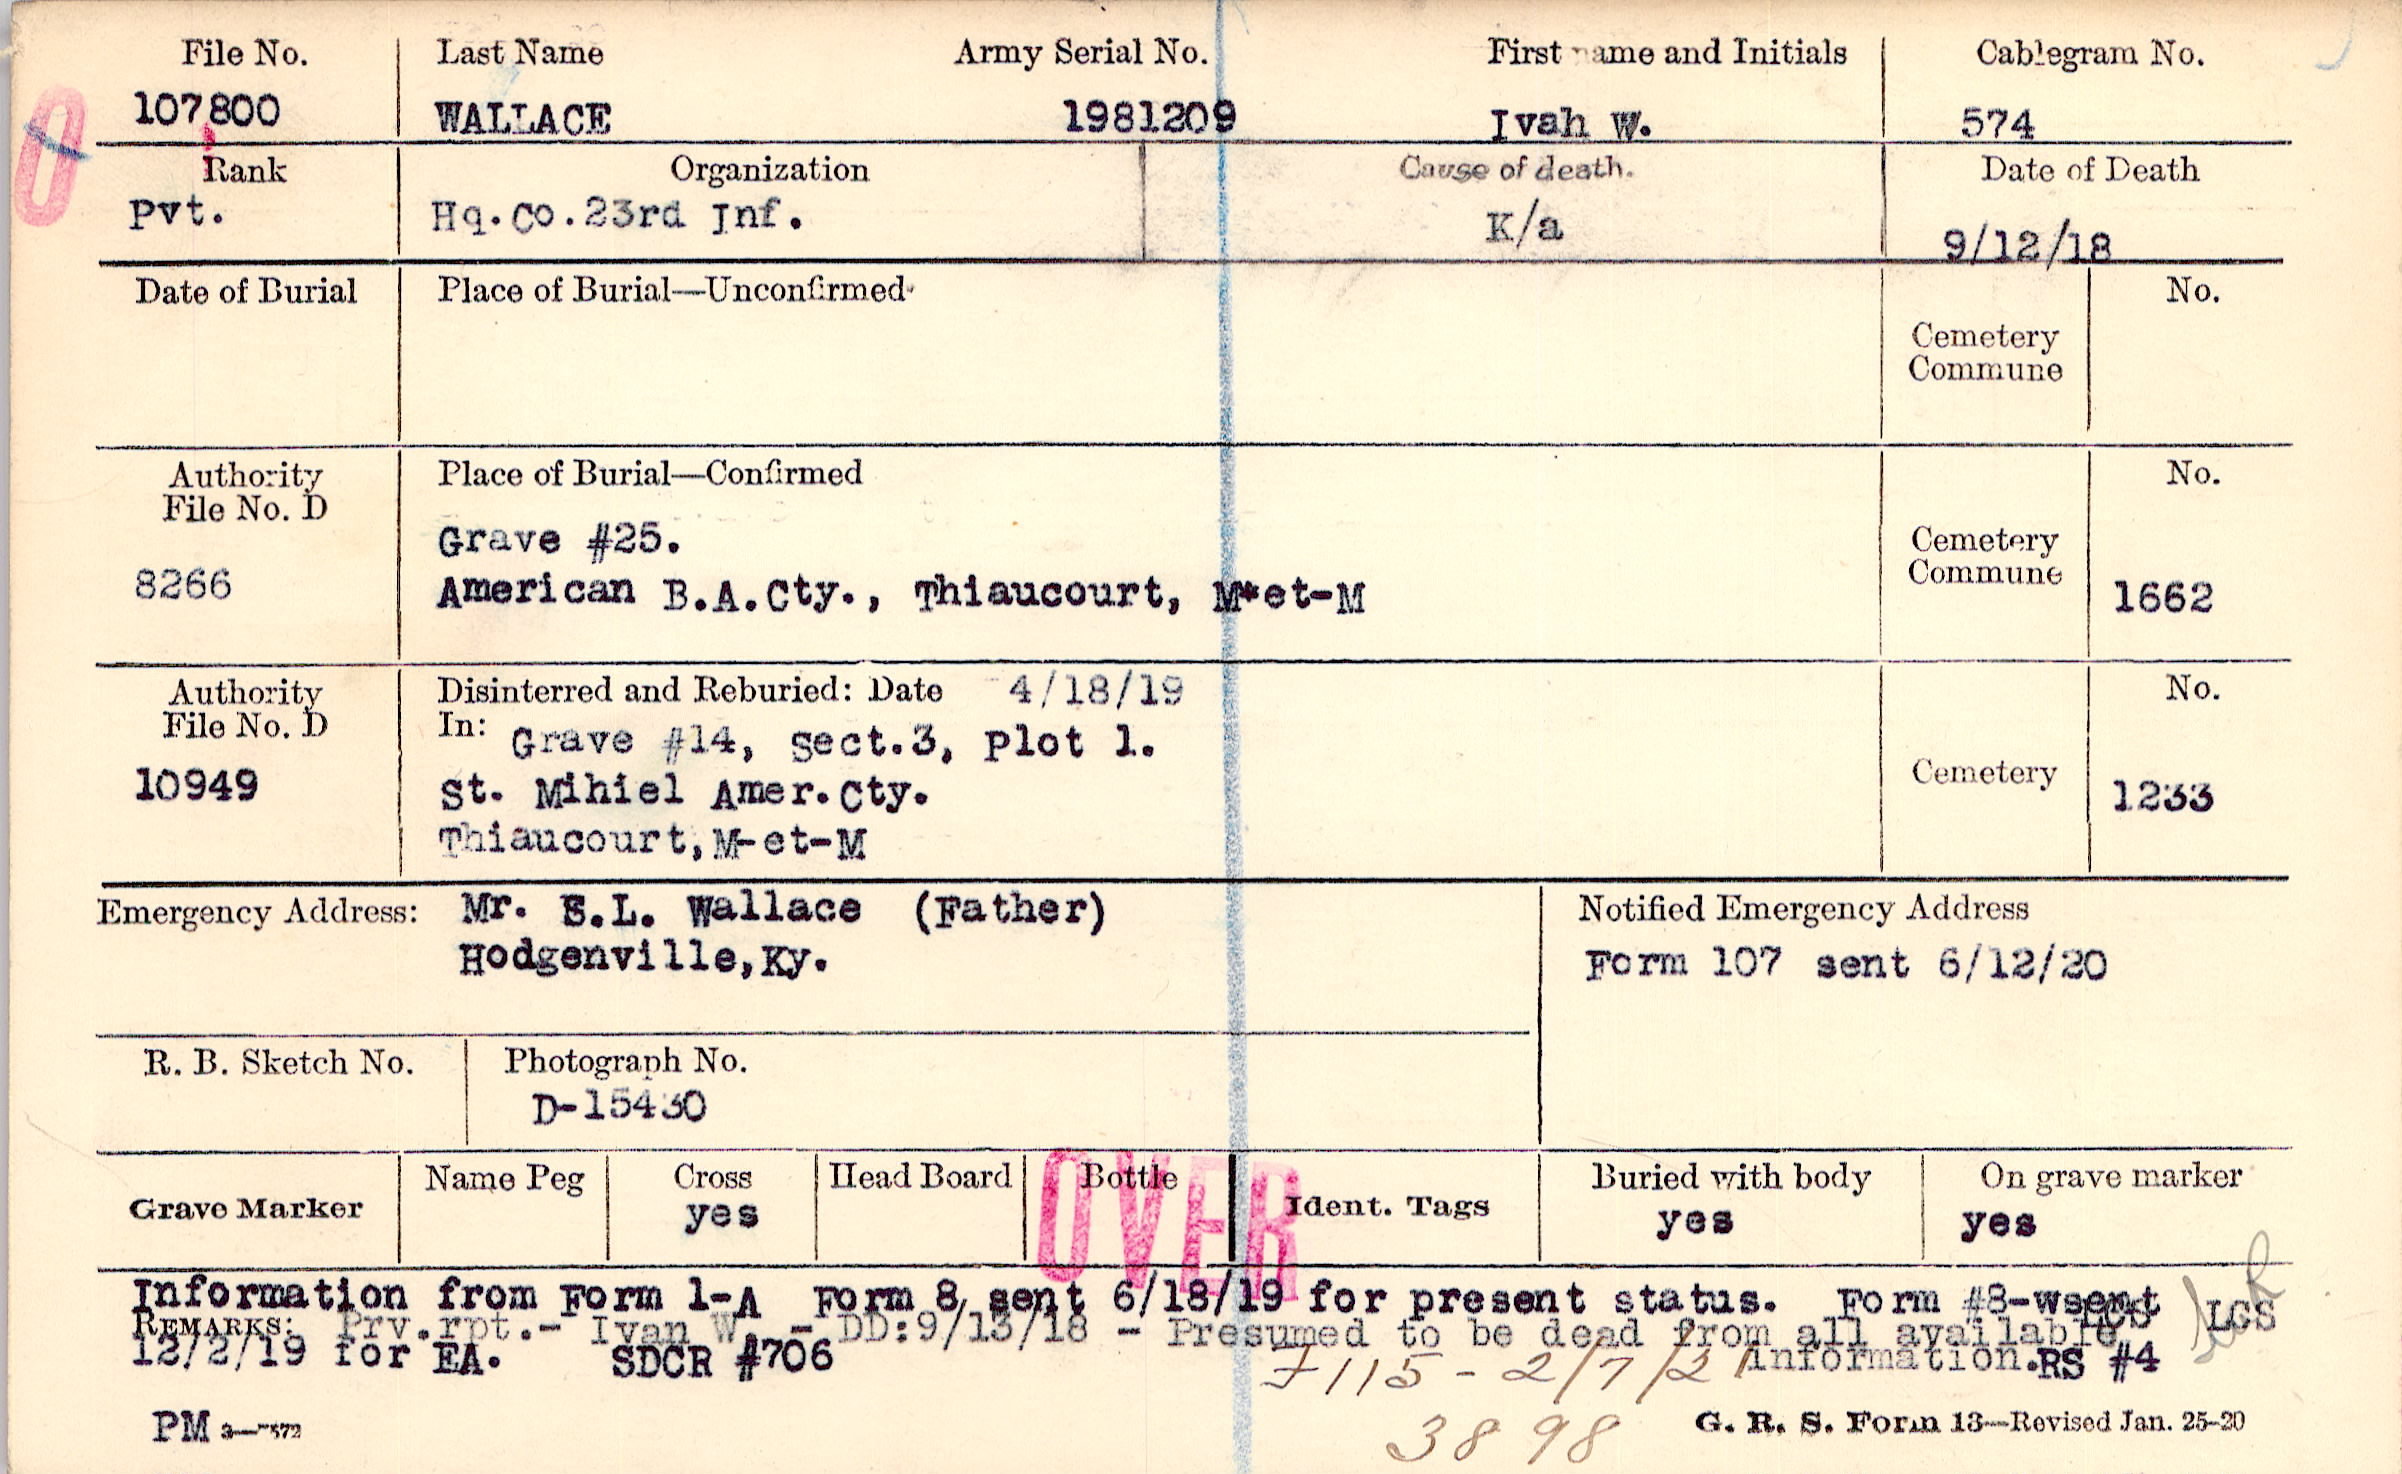 File No.
107800
Last Name
WALLACE
Army Serial No.
1981209
First name and Initials
Ivah W.
Cablegram No.
574
Rank
Pvt.
Organization
Hq.Co.23rd Inf.
Cause of death.
K/a
Date of Death
9/12/18
Date of Burial
Place of Burial—Unconfirmed
Cemetery
Commune
No.
Authority
File No. D
8266
Place of Burial—Confirmed
Grave #25.
American B.A.Cty., Thiaucourt, M*et-M
Cemetery
Commune
No.
1662
Authority
File No. D
10949
Disinterred and Reburied: Date 4/18/19
In: Grave #14, Sect.3, Plot 1.
St. Mihiel Amer.Cty.
Thiaucourt,M-et-M
Cemetery
No.
1233
Emergency Address: Mr. S.L. Wallace (Father)
Hodgenville,Ky.
Notified Emergency Address
Form 107 sent 6/12/20
R. B. Sketch No.
Photograph No.
D-15430
Grave Marker
Name Peg
Cross
yes
Head Board
Bottle
OVER
Ident. Tags
Buried with body
yes
On grave marker
yes
Information from Form 1-A Form 8 sent 6/18/19 for present status. Form #8-wsent
REMARKS: Prv.rpt.- Ivan W. - DD:9/13/18 - Presumed to be dead from all available
LCS LGS
information.
12/2/19 for EA. SDCR #706 RS #4
F115 - 2/7/21
3898
PM
G. R. S. Form 13—Revised Jan. 25-20